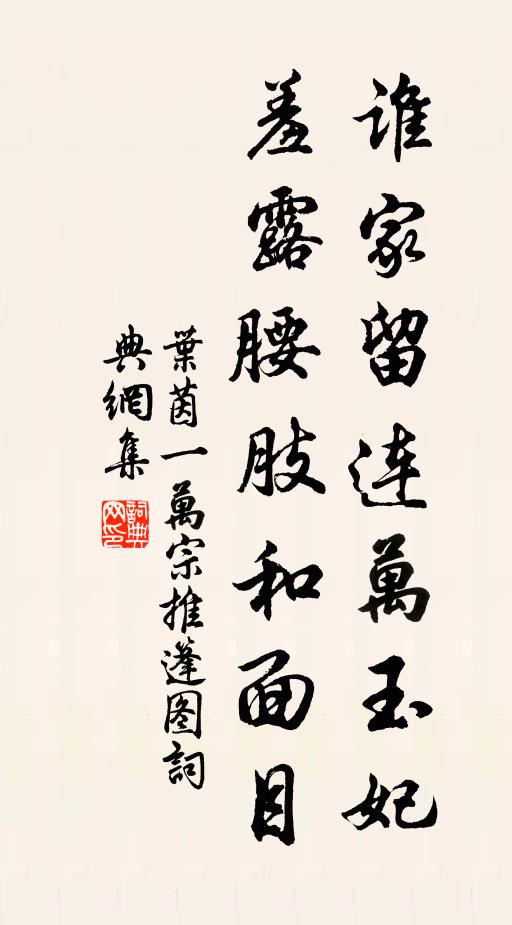 誰家留連萬玉妃
羞露腰肢和面目
葉茵一萬宗推篷图詞
典網集
詞典网印